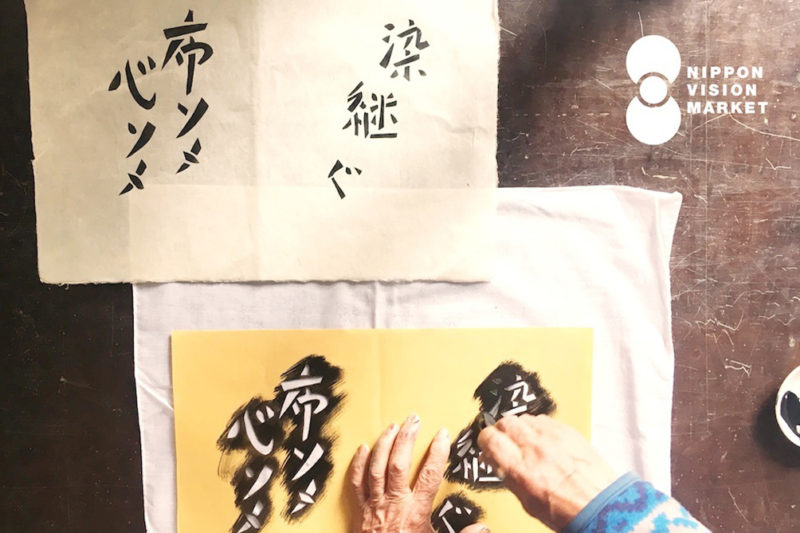 染継ぐ
布ソメ
心ソメ
NIPPON
VISION
MARKET
染継ぐ
布ソメ
心ソメ